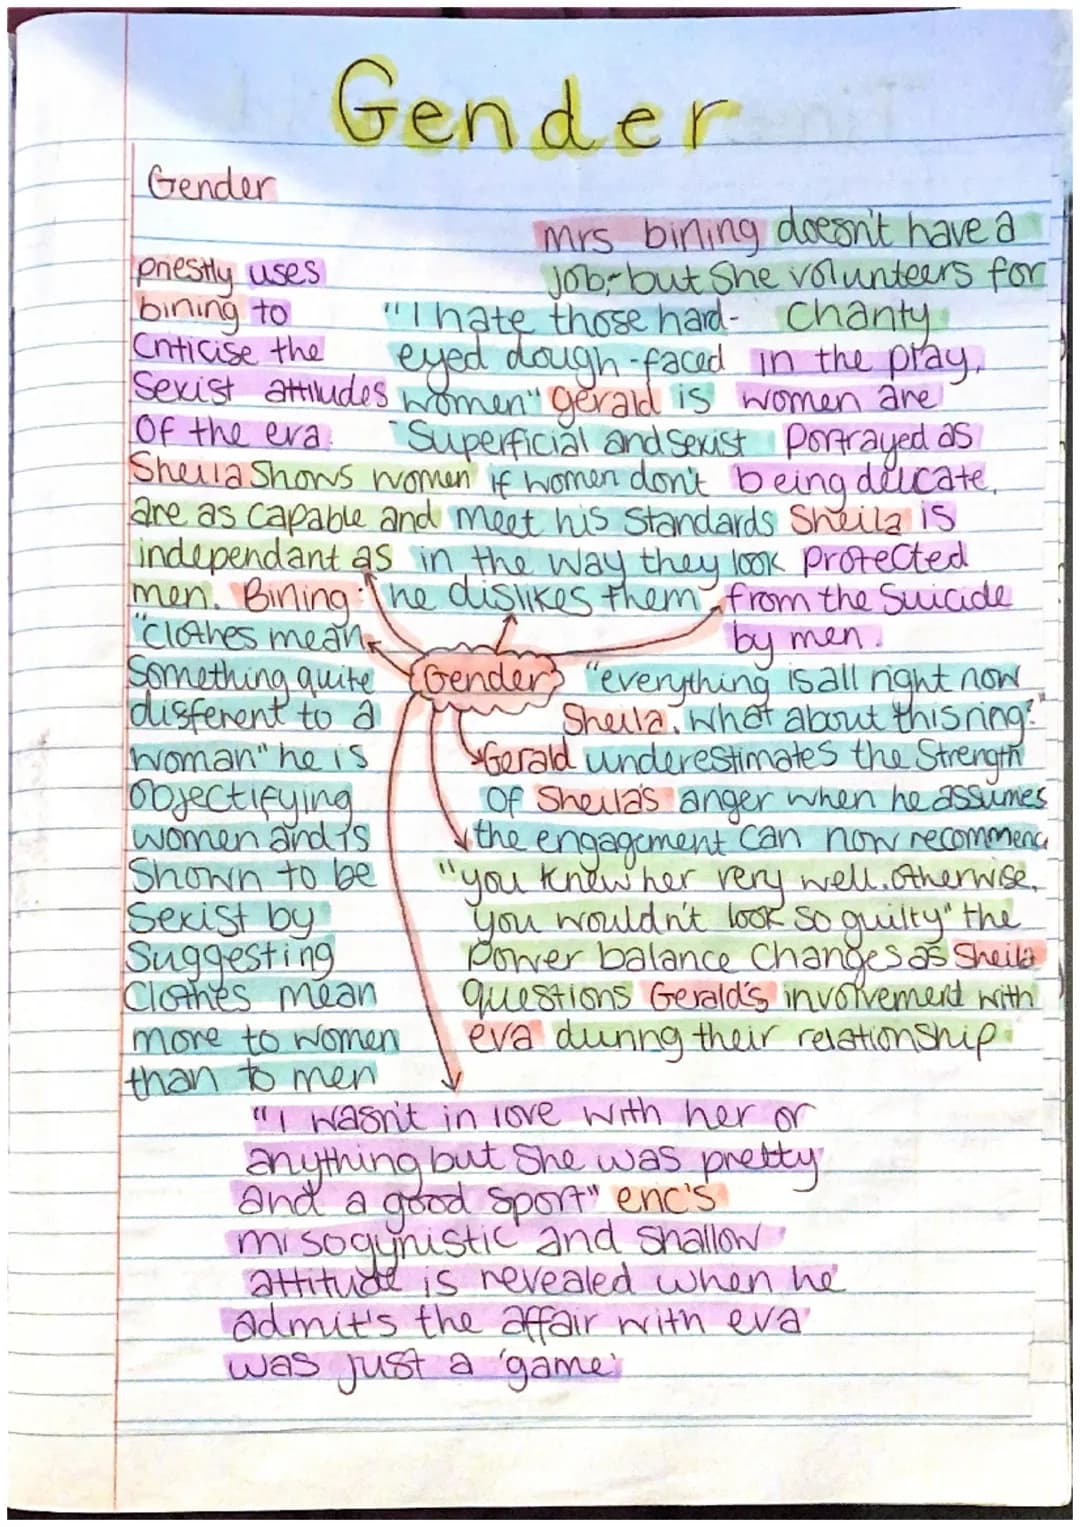 Gender
Gender
mrs bining doesn't have a
job, but she volunteers for
charity
priestly uses
bining to
criticise the
sexist attitudes
of the era.
"I hate those hard-
eyed dough-faced
women" gerald is
superficial and sexist
if women don't
meet his standards
in the way they look
he dislikes them
in the play,
women are
portrayed as
being delicate,
Sheila is
protected
from the suicide
by men.
Sheila shows women
are as capable and
independant as
men. Bining:
"clothes mean
something quite
different to a
woman" he is
objectifying
women and is
shown to be
sexist by
suggesting
clothes mean
more to women
than to men
Gender
"everything is all right now
Sheila. what about this ring?"
Gerald underestimates the strength
of Sheila's anger when he assumes
the engagement can now recommenc
"you knew her very well. otherwise,
you wouldn't look so guilty" the
power balance changes as Sheila
questions Gerald's involvement with
eva during their relationship
"I wasn't in love with her or
anything but she was pretty
and a good sport" eric's
misogynistic and shallow
attitude is revealed when he
admit's the affair with eva
was just a 'game'